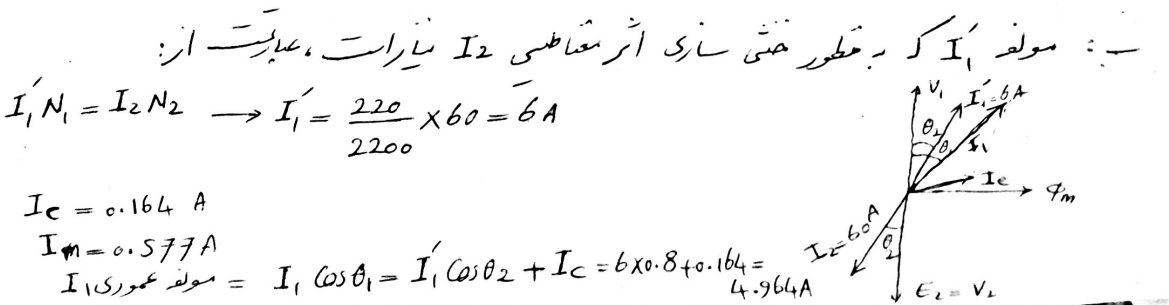 ب: مولفه I₁′ که به منظور خنثی سازی اثر مغناطیسی I₂ نیاز است، عبارتست از:
I₁′N₁ = I₂N₂ → I₁′ = 220/2200 × 60 = 6A
I_c = 0.164 A
I_m = 0.577A
مولفه عمودی I₁ = I₁ Cosθ₁ = I₁′ Cosθ₂ + I_c = 6×0.8+0.164=
4.964A
V₁
I₁′=6A
θ₂
θ₁
I₁
I_e
φ_m
I₂=60A
θ₂
E₂ = V₂